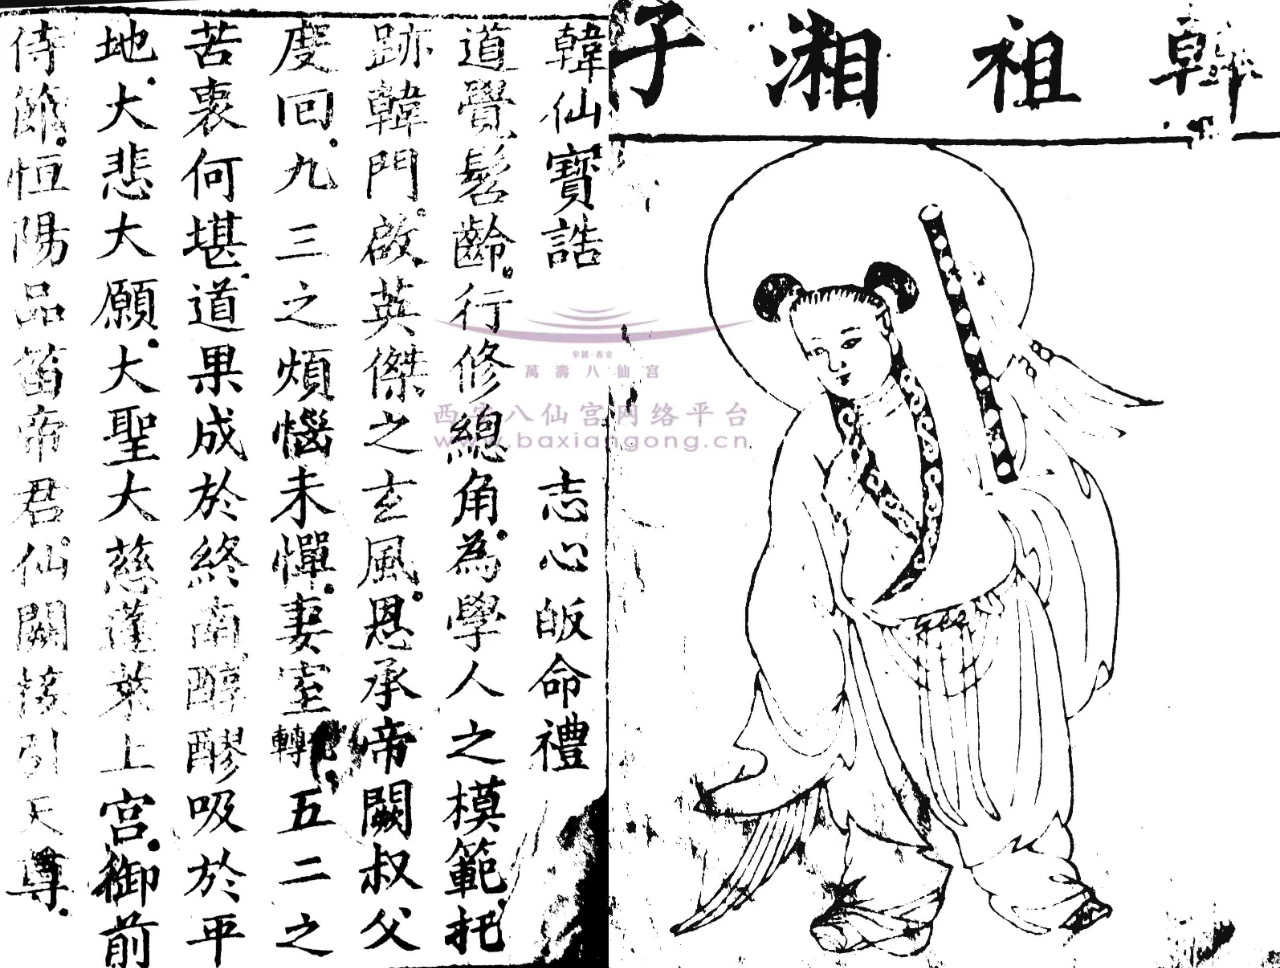 韓祖湘子
韓仙寶誥 志心皈命禮
道覺髫齡。行修總角。為學人之模範。托
跡韓門。啟英傑之玄風。恩承帝闕叔父
度回。九三之煩惱未憚。妻室轉。五二之
苦衷何堪。道果成於終南醇醪吸於平
地。大悲大願。大聖大慈蓬萊上宮。御前
侍節。恒陽品笛帝君仙闕接引天尊。
中国·西安
萬壽八仙宮
西安八仙宫网络平台
www.baxiangong.cn